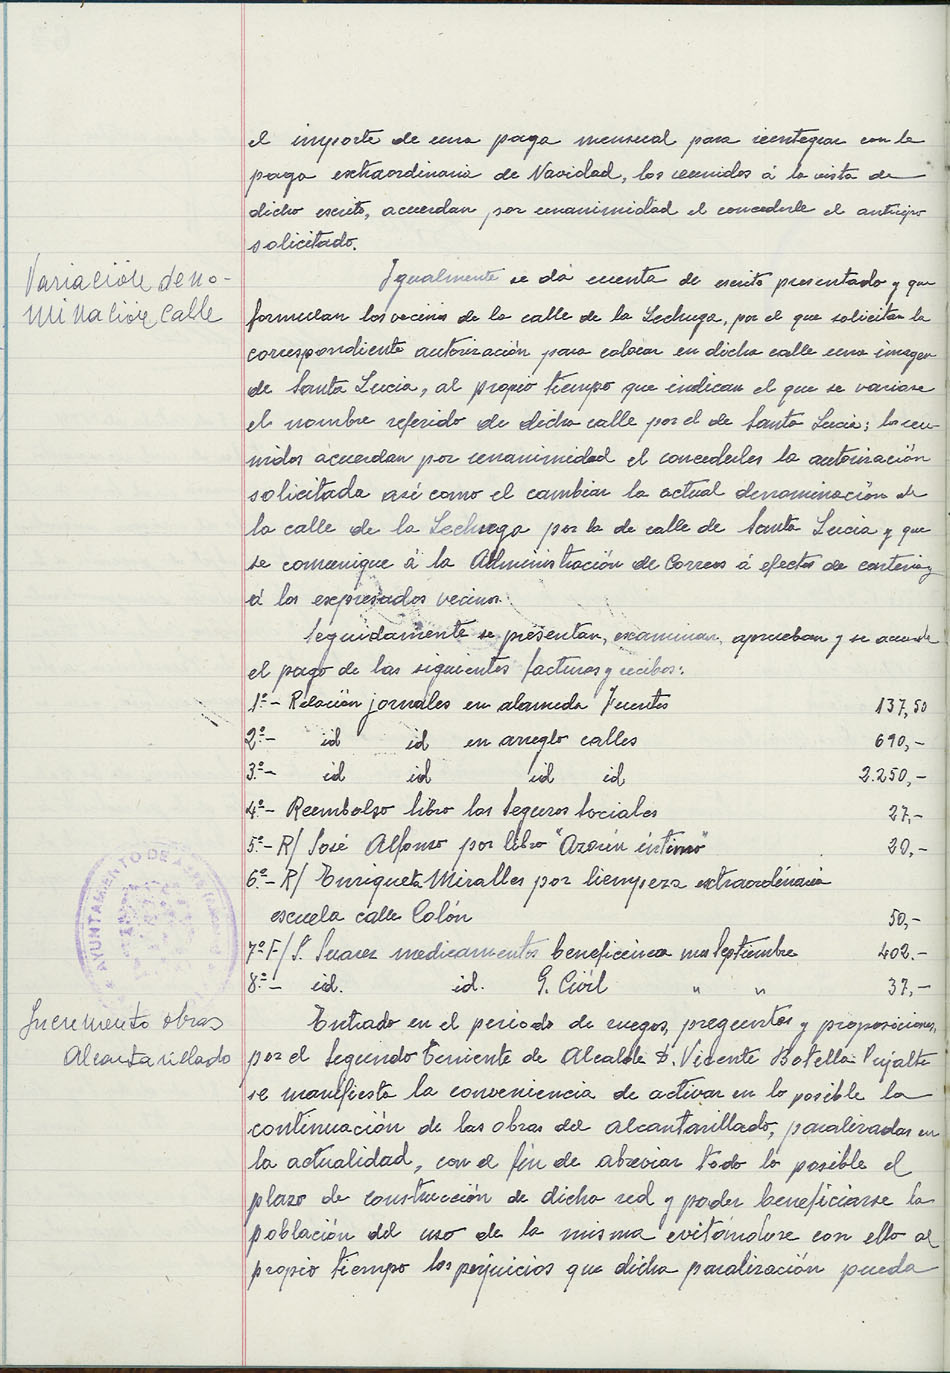 el importe de una paga mensual para reintegrar con la
paga extraordinaria de Navidad, los reunidos á la vista de
dicho escrito, acuerdan por unanimidad el concederle el anticipo
solicitado.
Variación deno-
minación Calle
Igualmente se dá cuenta de escrito presentado y que
formulan los vecinos de la calle de la Lechuga, por el que solicitan la
correspondiente autorización para colocar en dicha calle una imagen
de Santa Lucia, al propio tiempo que indican el que se variase
el nombre referido de dicha calle por el de Santa Lucia; los reu-
nidos acuerdan por unanimidad el concederles la autorización
solicitada así como el cambiar la actual denominación de
la calle de la Lechuga por la de calle de Santa Lucia y que
se comunique á la Administración de Correos á efectos de cartería y
á los expresados vecinos.
Seguidamente se presentan, examinan, aprueban y se acuerda
el pago de las siguientes facturas y recibos:
1º- Relación jornales en alameda Fuentes 137,50
2º- id id en arreglo calles 690,-
3º- id id id id 2.250,-
4º- Reembolso libro los Seguros Sociales 27,-
5º- R/ José Alfonso por libro "Azorín íntimo" 20,-
6º- R/ Enriqueta Miralles por limpieza extraordinaria
escuela calle Colón 50,-
7º F/ S. Suarez medicamentos beneficencia mes Septiembre 402.-
8º- id. id. G. Civil " " 37,-
AYUNTAMIENTO DE
Incremento obras
Alcantarillado
Entrado en el periodo de ruegos, preguntas y proposiciones,
por el Segundo Teniente de Alcalde D. Vicente Botella Pujalte
se manifiesta la conveniencia de activar en lo posible la
continuación de las obras del alcantarillado, paralizadas en
la actualidad, con el fin de abreviar todo lo posible el
plazo de construcción de dicha red y poder beneficiarse la
población del uso de la misma evitándose con ello al
propio tiempo los perjuicios que dicha paralización pueda